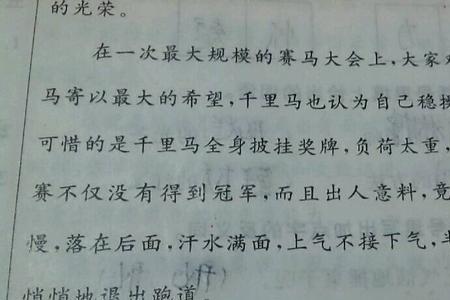 的光荣。
在一次最大规模的赛马大会上,大家
马寄以最大的希望,千里马也认为自己稳操
可惜的是千里马全身披挂奖牌,负荷太重,
赛不仅没有得到冠军,而且出人意料,竟
慢,落在后面,汗水满面,上气不接下气,半
悄悄地退出跑道。